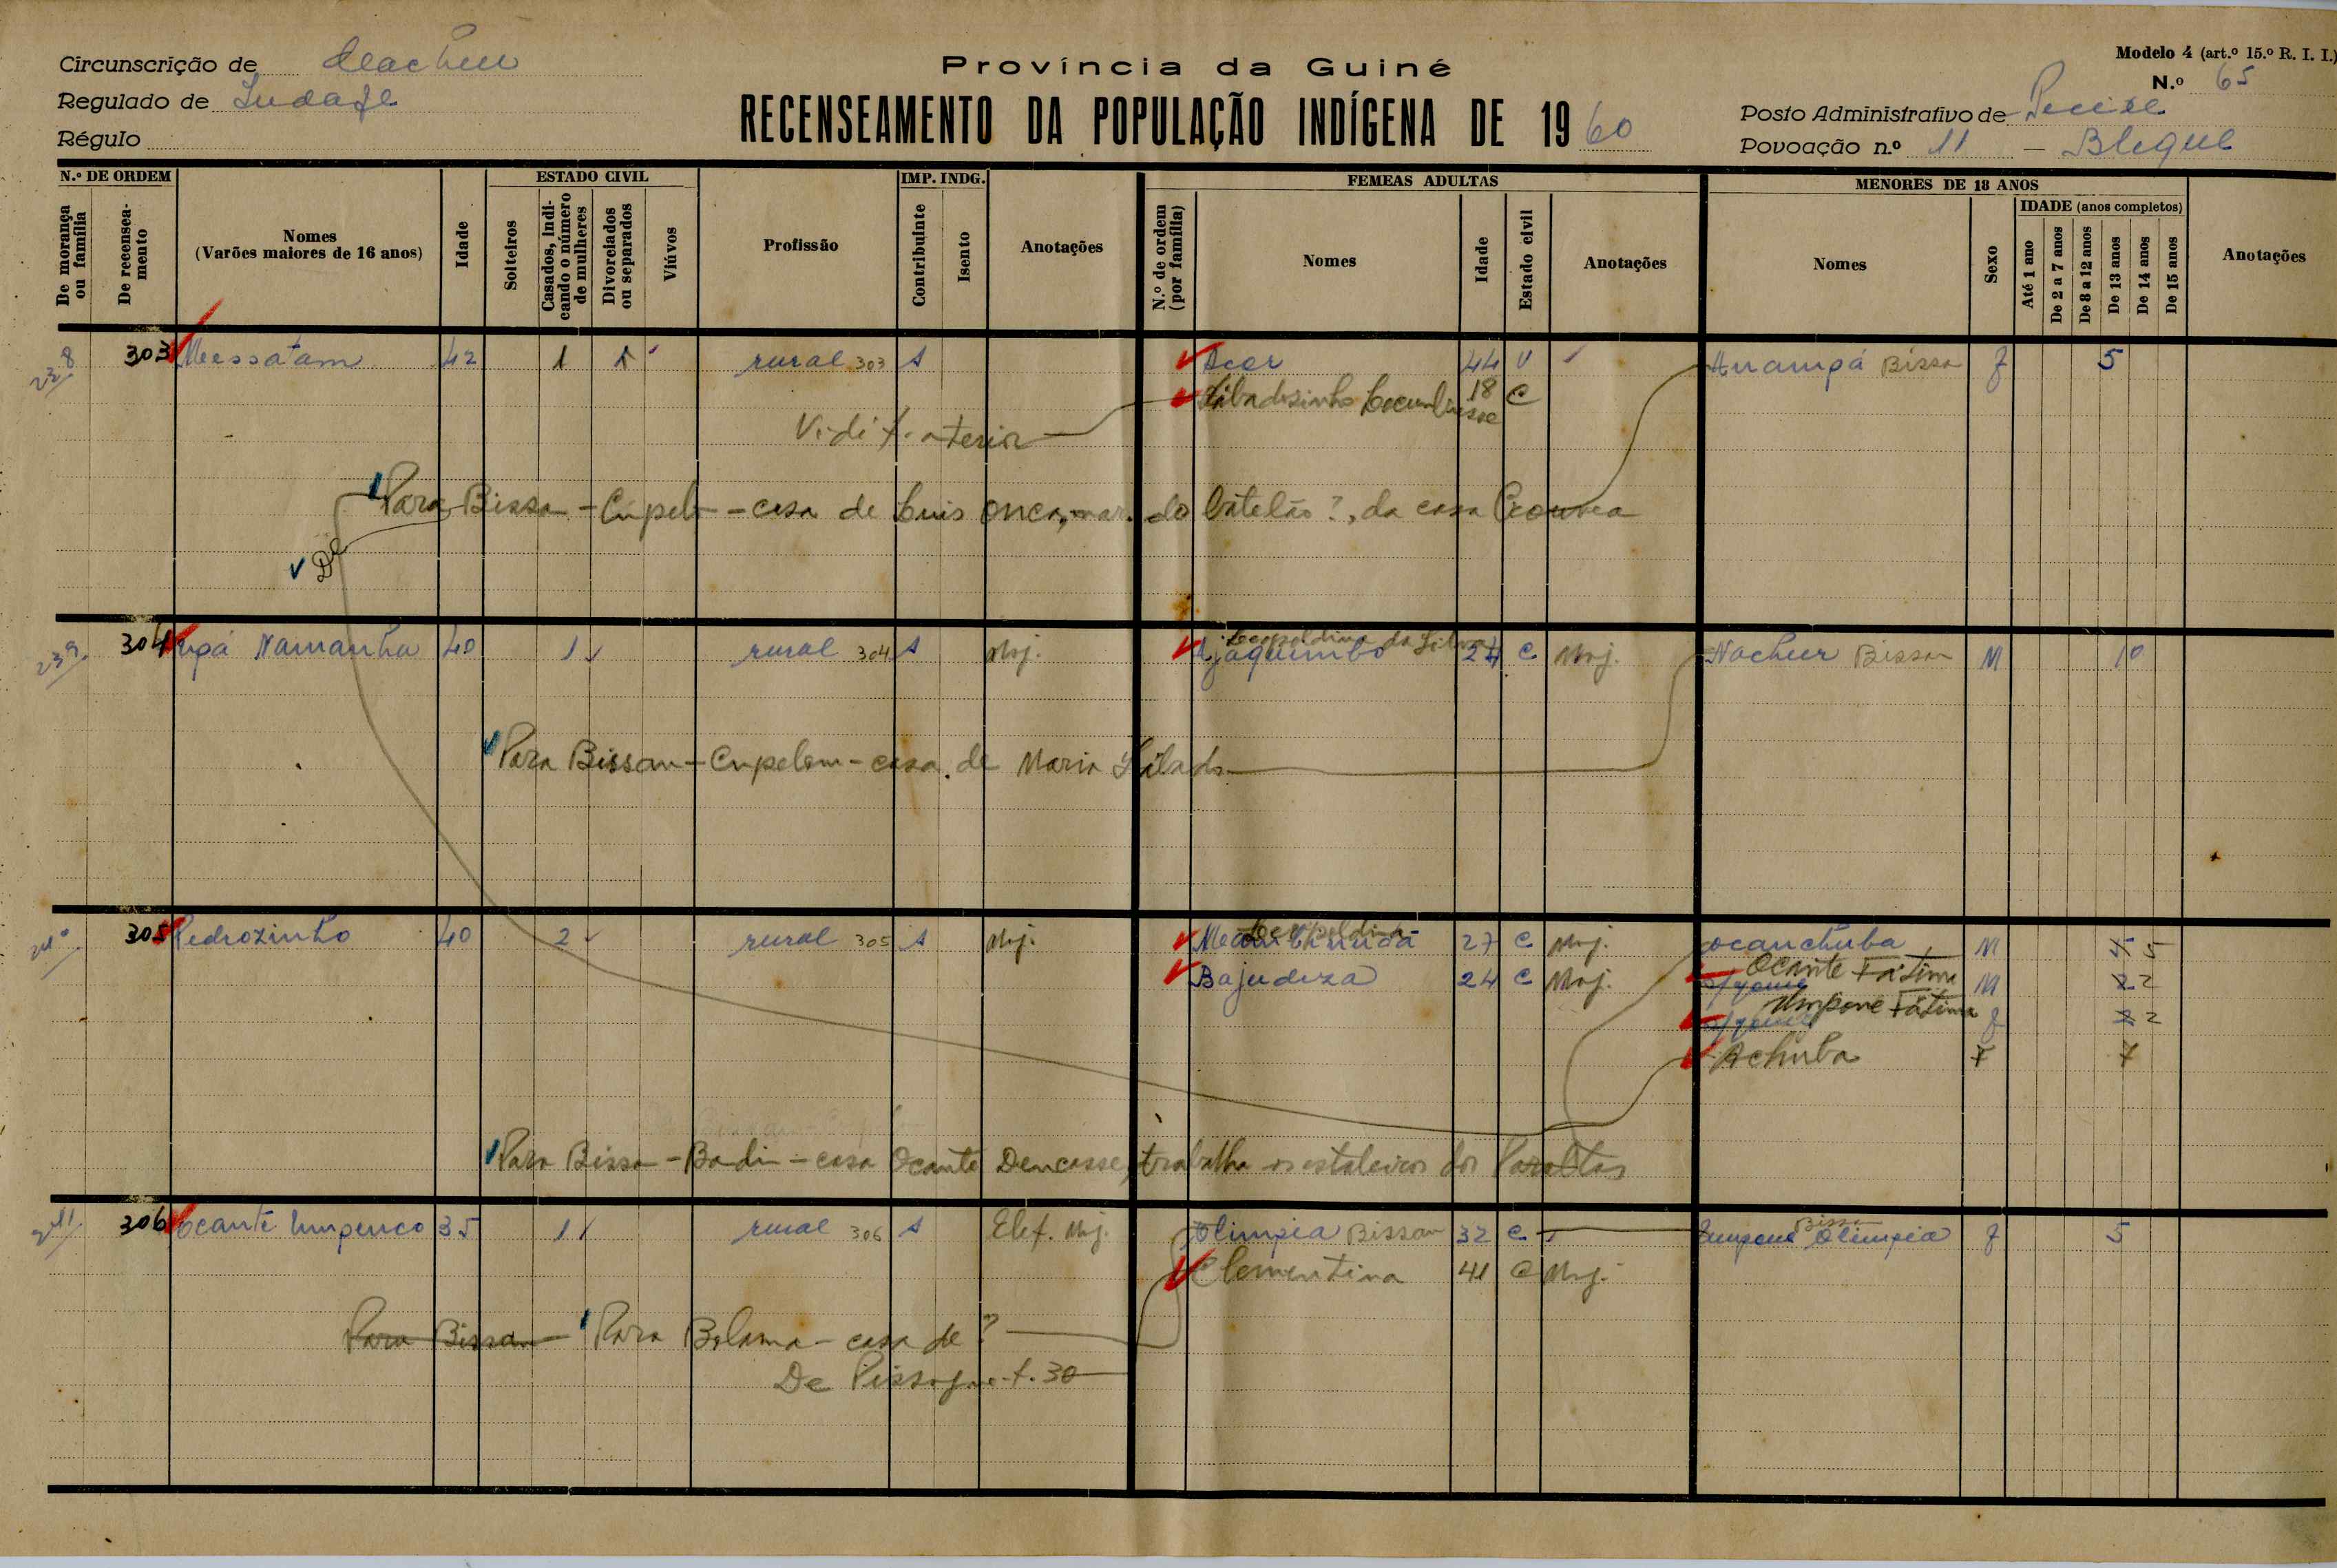 Circunscrição de
Província da Guiné
Modelo 4 (art.º 15.º R. I. I.)
N.º 65
Regulado de
RECENSEAMENTO DA POPULAÇÃO INDÍGENA DE 1960
Posto Administrativo de
Régulo
Povoação n.º 11 — Bleque
N.º DE ORDEM
ESTADO CIVIL
IMP. INDG.
FEMEAS ADULTAS
MENORES DE 18 ANOS
De morança ou família
De recenseamento
Nomes
(Varões maiores de 16 anos)
Idade
Solteiros
Casados, indicando o número de mulheres
Divorciados ou separados
Viúvos
Profissão
Contribuinte
Isento
Anotações
N.º de ordem (por família)
Nomes
Idade
Estado civil
Anotações
Nomes
Sexo
IDADE (anos completos)
Até 1 ano
De 2 a 7 anos
De 8 a 12 anos
De 13 anos
De 14 anos
De 15 anos
Anotações
238 303 Messatam 42 1 1 rural 303 1 Acor 44 V Anampá Bissau f 5
18 C
Vidi f. anterior
Para Bissau - Cupelom - casa de Luis Onca, mar. do batelão?, da casa Gouvea
De
239 304 Upá Namanha 40 1 rural 304 1 Maj. Leopoldina da Silva Ajaquimbo 24 C Maj. Nachur Bissau M 10
Para Bissau - Cupelom - casa de Maria
240 305 Pedrozinho 40 2 rural 305 1 Maj. Leopoldina 27 C Maj. ocanchuba M 4 5
Bajudeza 24 C Maj. Ocante Fátima M 2 2
Umpone Fátima f 2 2
Achuba F 7
Para Bissau - Bandim - casa Ocante Dencasse, trabalha estaleiros dos
241 306 Ocante Umpenco 35 1 rural 306 1 Elef. Maj. Olimpia Bissau 32 C Umpone Olimpia Bissau f 5
Clementina 41 C Maj.
Para Bissau Para Bolama - casa de ?
De Pissague f. 30